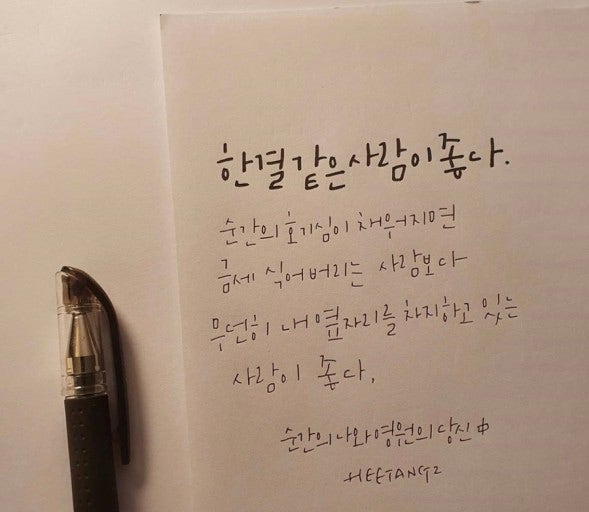 한결 같은 사람이 좋다.
순간의 호기심이 채워지면
금세 식어버리는 사람보다
무던히 내 옆자리를 차지하고 있는
사람이 좋다.
순간의 나와 영원의 당신 中
HEETANGZ